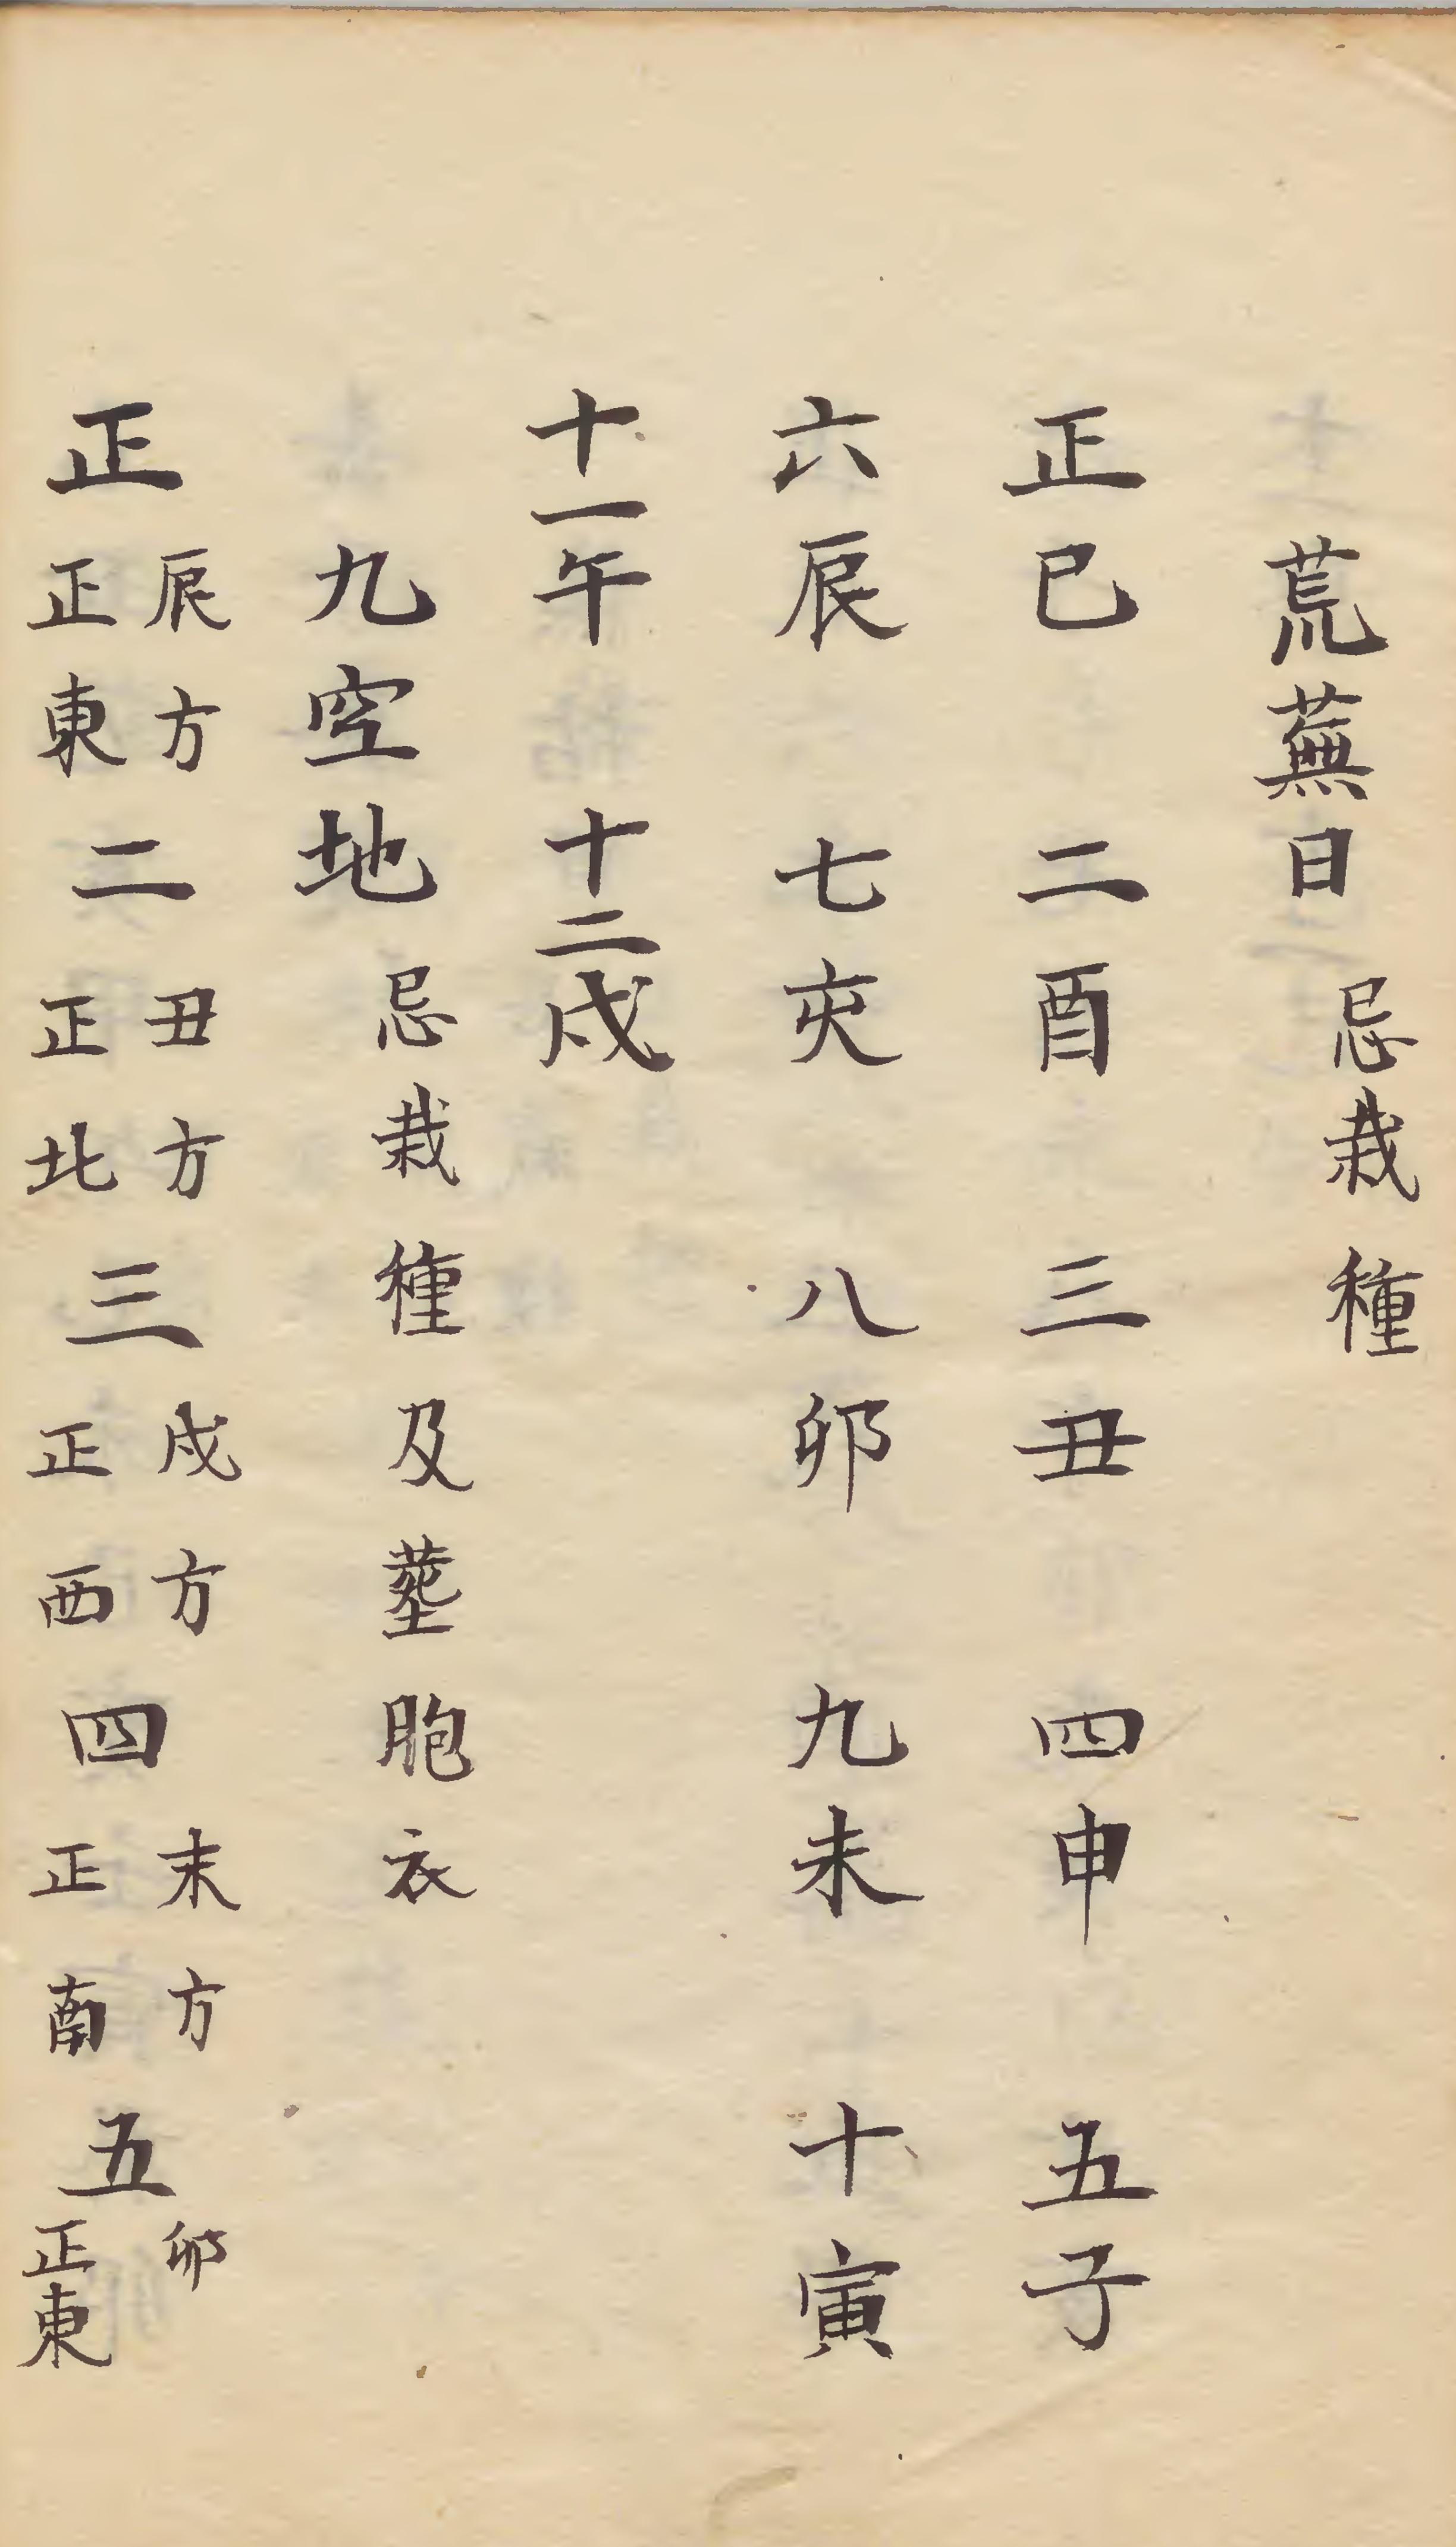 荒蕪日忌栽種
正巳 二酉 三丑 四申 五子
六辰 七亥 八卯 九未 十寅
十一午 十二戌
九空地忌栽種及塟胞衣
正辰方正東 二丑方正北 三戌方正西 四末方正南 五卯正東